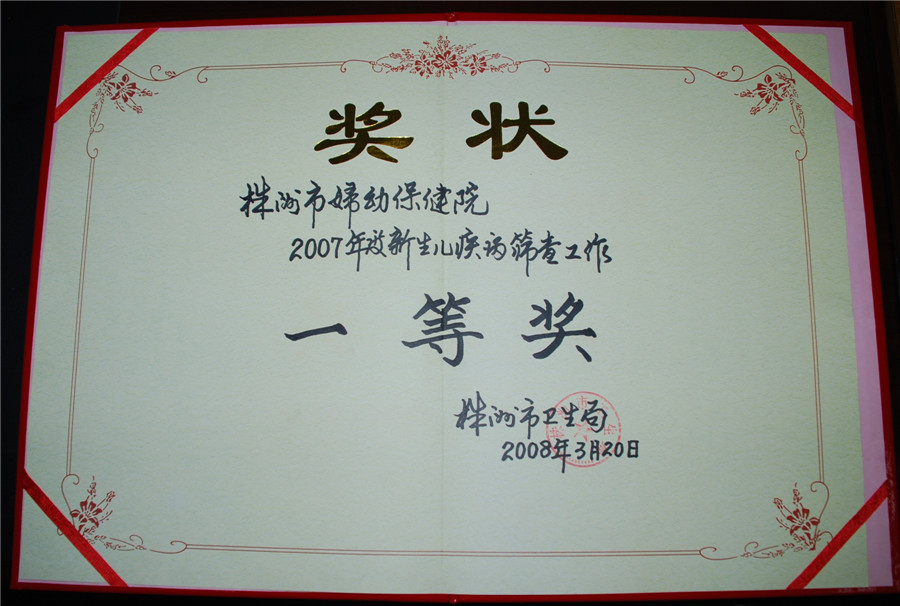 奖状
株洲市妇幼保健院
2007年度新生儿疾病筛查工作
一等奖
株洲市卫生局
2008年3月20日